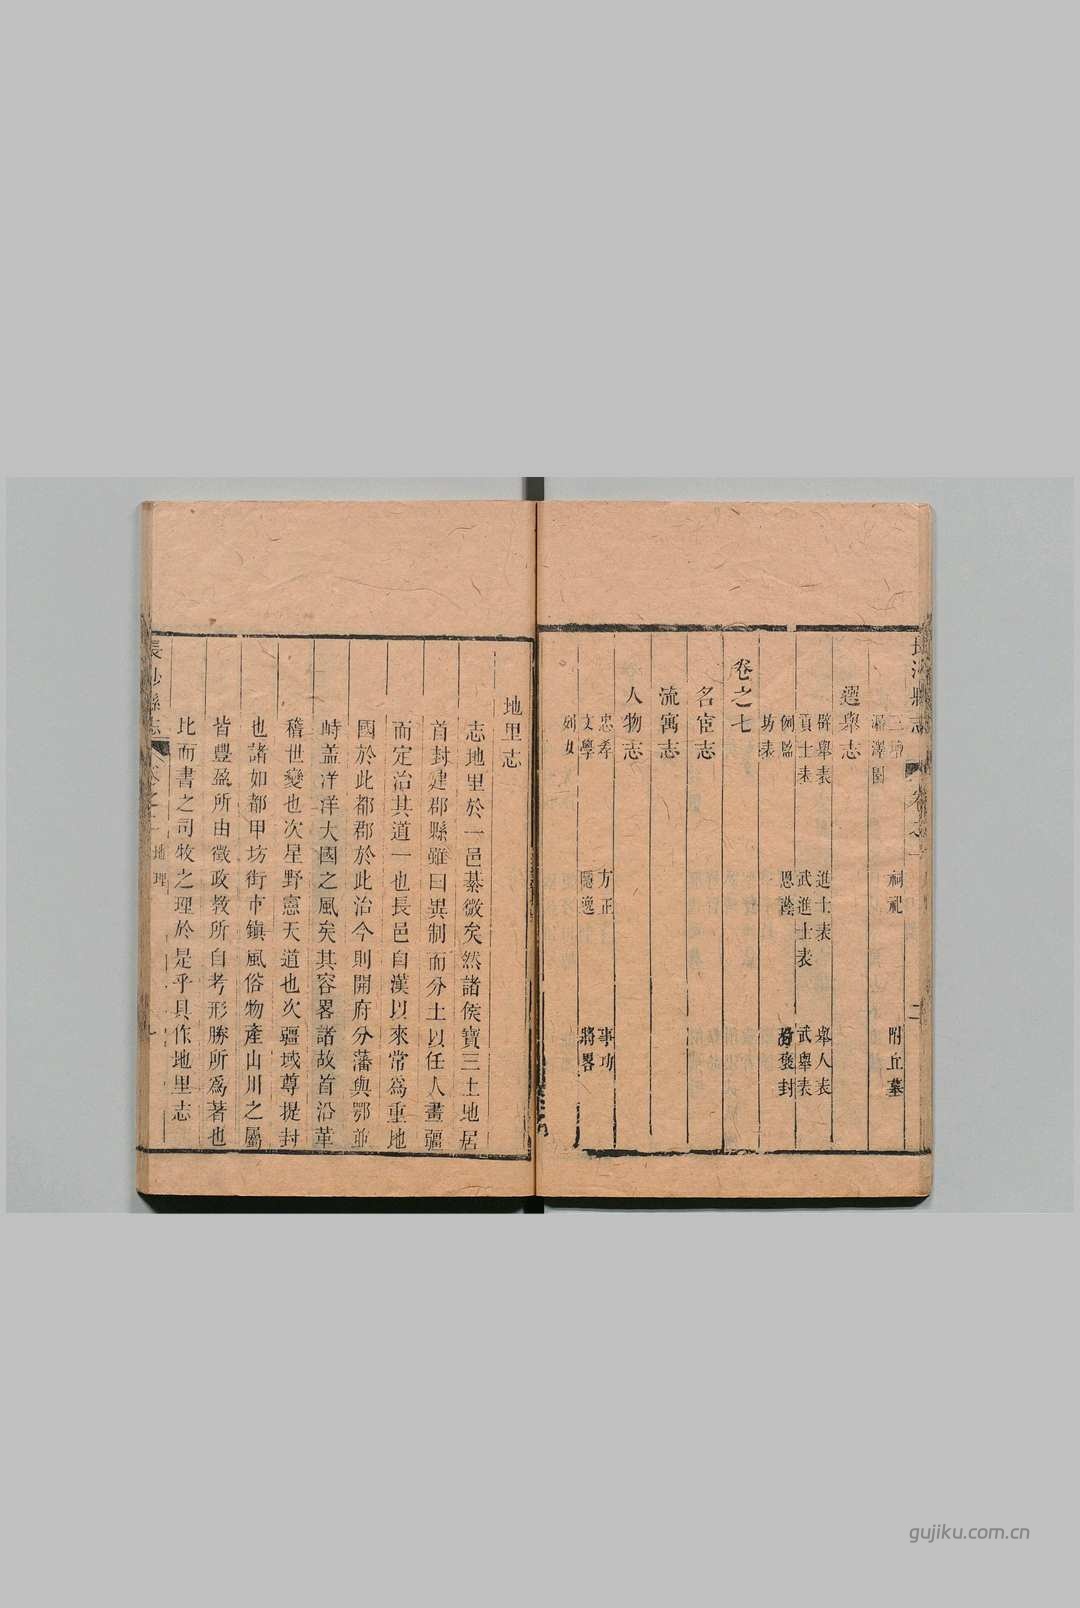 長沙縣志 卷之一 二
祠祀 附丘墓
漏澤園
選舉志
辟舉表 進士表 舉人表
貢士表 武進士表 武舉表
例監 恩詮 褒封
坊表
卷之七
名宦志
流寓志
人物志
忠孝 方正 事功
文學 隱逸 將畧
列女
地里志
志地里於一邑綦微矣然諸侯寶三土地居
首封建郡縣雖曰異制而分土以任人畫疆
而定治其道一也長邑自漢以來常爲重地
國於此都郡於此治今則開府分藩與鄂並
峙蓋洋洋大國之風矣其容畧諸故首沿革
稽世變也次星野憲天道也次疆域尊提封
也諸如都甲坊街市鎮風俗物產山川之屬
皆豐盈所由徵政教所自考形勝所爲著也
比而書之司牧之理於是乎具作地里志
長沙縣志 卷之一 地理